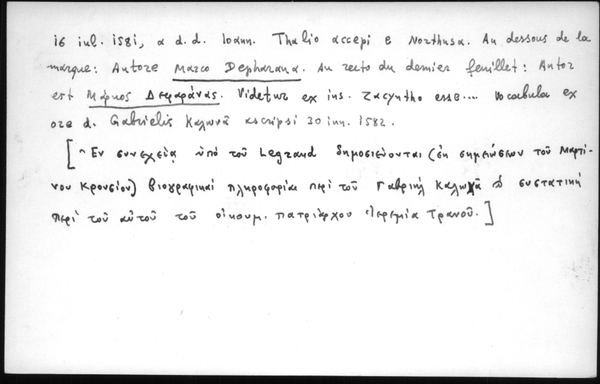 16 iul. 1581, a d.d. Ioann. Thalio accepi e Northusa. Au dessous de la
marque: Autore Marco Depharana. Au recto du dernier feuillet: Autor
est Μάρκος Δεφαράνας. Videtur ex ins. Zacyntho esse.... Vocabula ex
ore d. Gabrielis Καλωνᾶ ascripsi 30 iun. 1582.
[Ἐν συνεχείᾳ ὑπό τοῦ Legrand δημοσιεύονται (ἐκ σημειώσεων τοῦ Μαρτί-
νου Κρουσίου) βιογραφικαί πληροφορίαι περί τοῦ Γαβριήλ Καλωνᾶ συστατική
περί τοῦ αὐτοῦ τοῦ οἰκουμ. πατριάρχου Ἱερεμία Τρανοῦ.]